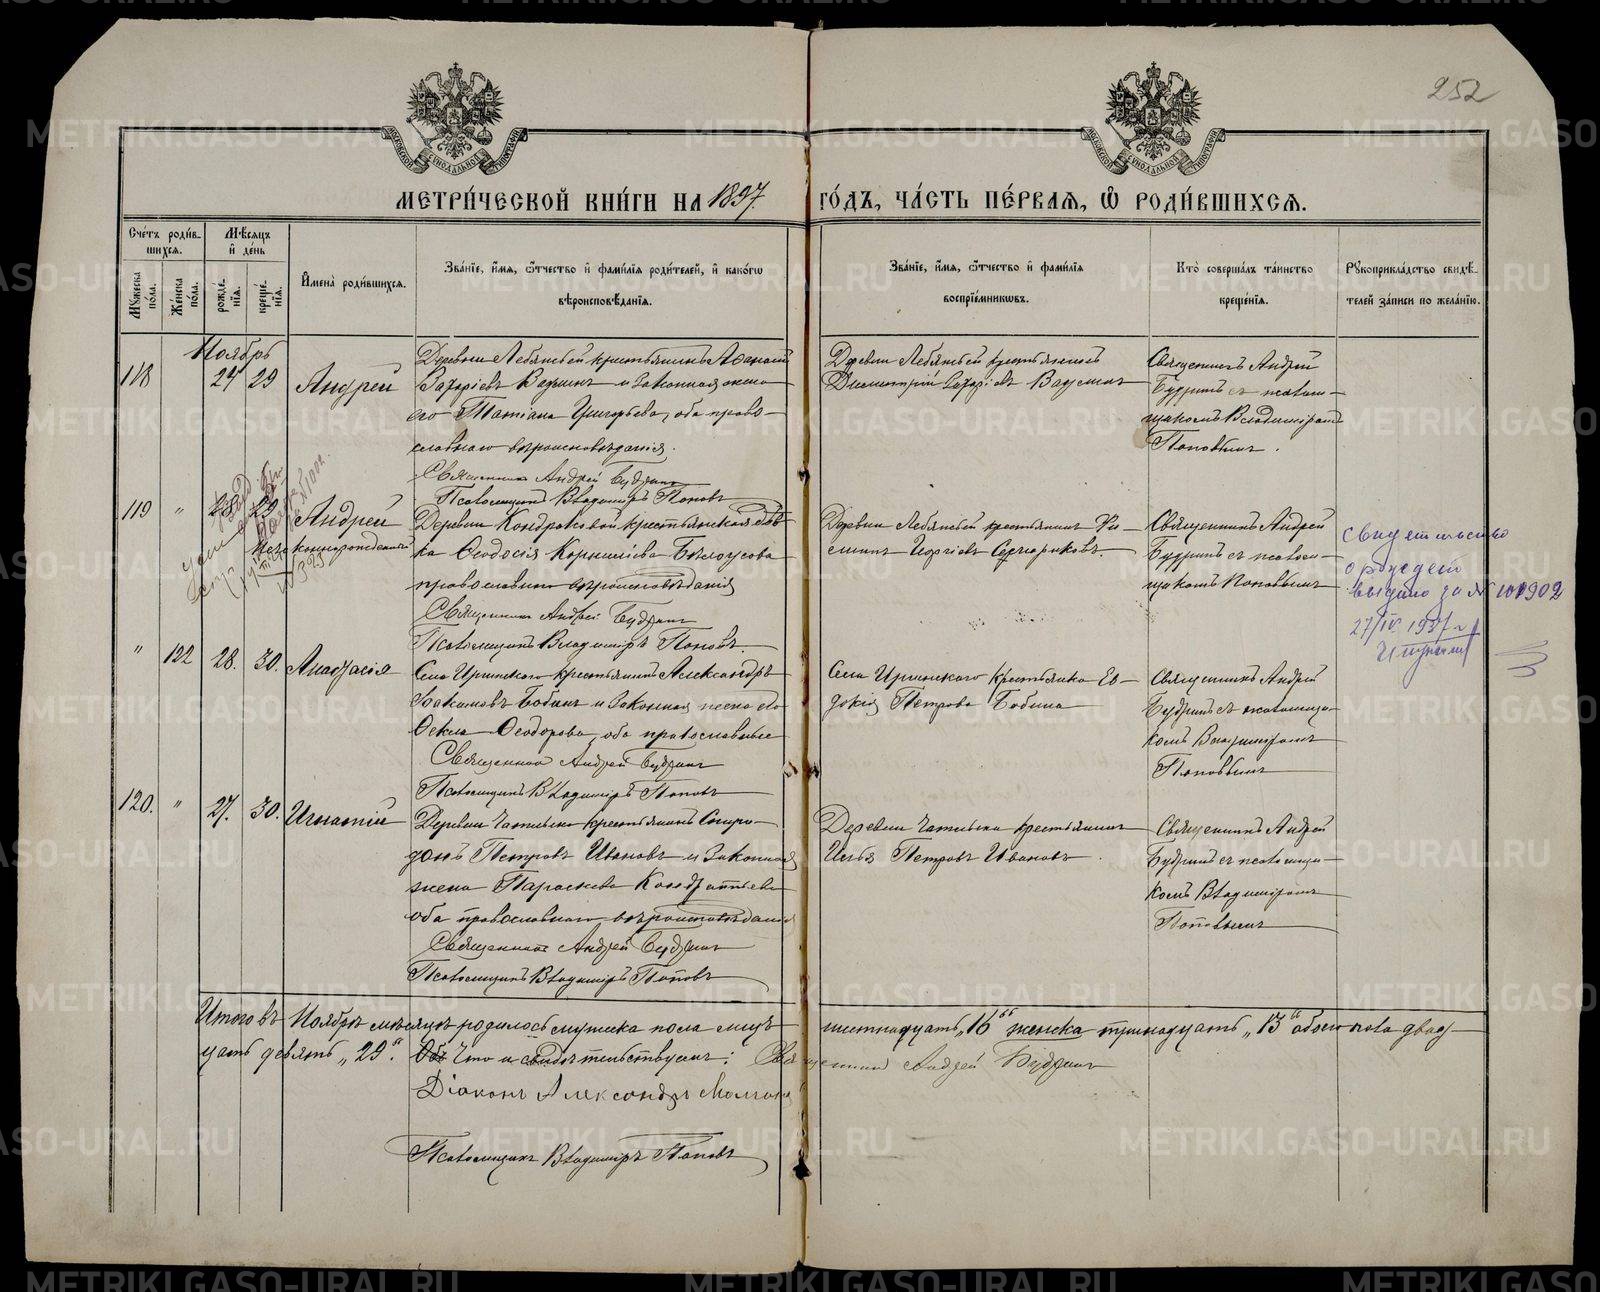 252
МЕТРИ́ЧЕСКОЙ КНИ́ГИ НА 1897. ГО́ДЪ, ЧА́СТЬ ПЕ́РВАѦ, Ѽ РОДИ́ВШИХСѦ.
Сче́тъ роди́вшихсѧ.
Мꙋ́жеска по́ла.
Же́нска по́ла.
Мѣ́сѧцъ и҆ де́нь
рожде́нїѧ.
креще́нїѧ.
И҆мена̀ роди́вшихсѧ.
Зва́нїе, и҆́мѧ, ѻ҆́тчество и҆ фами́лїѧ роди́телей, и҆ како́гѡ
вѣроисповѣ́данїѧ.
Зва́нїе, и҆́мѧ, ѻ҆́тчество и҆ фами́лїѧ
воспрїе́мникѡвъ.
Кто̀ соверша́лъ та́инство
креще́нїѧ.
Рꙋкоприкла́дство свидѣ́телей за́писи по жела́нїю.
Ноябрь
118
24 29
Андрей
Деревни Лебяжьей крестьянинъ Афанасий
Захаріевъ Вадминъ и законная жена
его Татіана Григорьева, оба право-
славнаго вѣроисповѣданія.
Священникъ Андрей Будринъ
Псаломщикъ Владиміръ Поповъ
Деревни Лебяжьей крестьянинъ
Димитрій Захаріевъ
Священникъ Андрей
Будринъ съ псалом-
щикомъ Владиміромъ
Поповымъ.
119 " 28 29
Андрей
незаконнорожденный
Деревни крестьянская дѣв-
ка Ѳеодосія Корниліева Бѣлоусова
православнаго вѣроисповѣданія
Священникъ Андрей Будринъ
Псаломщикъ Владиміръ Поповъ.
Деревни Лебяжьей крестьянинъ
Георгіевъ
Священникъ Андрей
Будринъ съ псалом-
щикомъ Поповымъ
Свидетельство
о рожден
выдано за №
27/IV 1937 г
" 122 28. 30.
Анастасія
Села Иргинскаго крестьянинъ Александръ
Бобинъ и законная жена его
Ѳекла Ѳеодорова, оба православные
Священникъ Андрей Будринъ
Псаломщикъ Владиміръ Поповъ
Села Иргинскаго крестьянка Ев-
докія Петрова Бобина
Священникъ Андрей
Будринъ съ псаломщи-
комъ Владиміромъ
Поповымъ
120. " 27. 30.
Игнатій
Деревни крестьянинъ Спири-
донъ Петровъ Ивановъ и законная
жена Параскева Кондратьева
оба православнаго вѣроисповѣданія
Священникъ Андрей Будринъ
Псаломщикъ Владиміръ Поповъ
Деревни крестьянинъ
Илья Петровъ Ивановъ.
Священникъ Андрей
Будринъ съ псаломщи-
комъ Владиміромъ
Поповымъ
Итого въ Ноябрѣ мѣсяцѣ родилось мужска пола шестнадцать „16“ женска тринадцать „13“ обоего пола двад-
цать девять „29“. Что и свидѣтельствуемъ: Священникъ Андрей Будринъ
Діаконъ Александръ
Псаломщикъ Владиміръ Поповъ